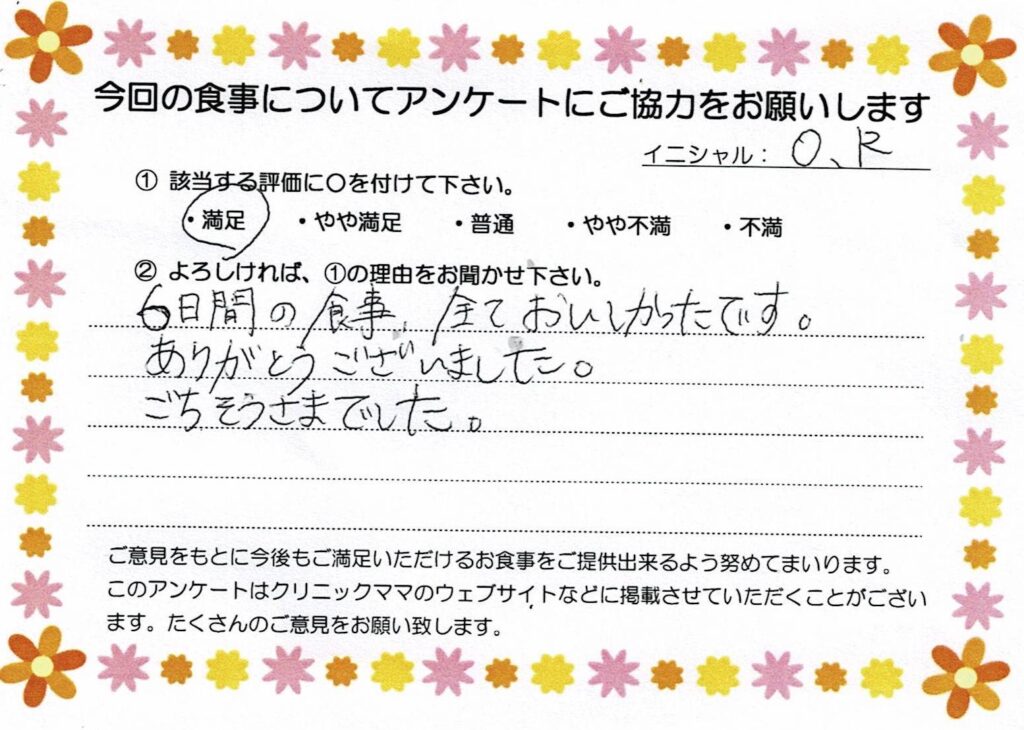 今回の食事についてアンケートにご協力をお願いします
イニシャル： O、R
① 該当する評価に〇を付けて下さい。
・満足 ・やや満足 ・普通 ・やや不満 ・不満
② よろしければ、①の理由をお聞かせ下さい。
6日間の食事、全ておいしかったです。
ありがとうございました。
ごちそうさまでした。
ご意見をもとに今後もご満足いただけるお食事をご提供出来るよう努めてまいります。
このアンケートはクリニックママのウェブサイトなどに掲載させていただくことがござい
ます。たくさんのご意見をお願い致します。